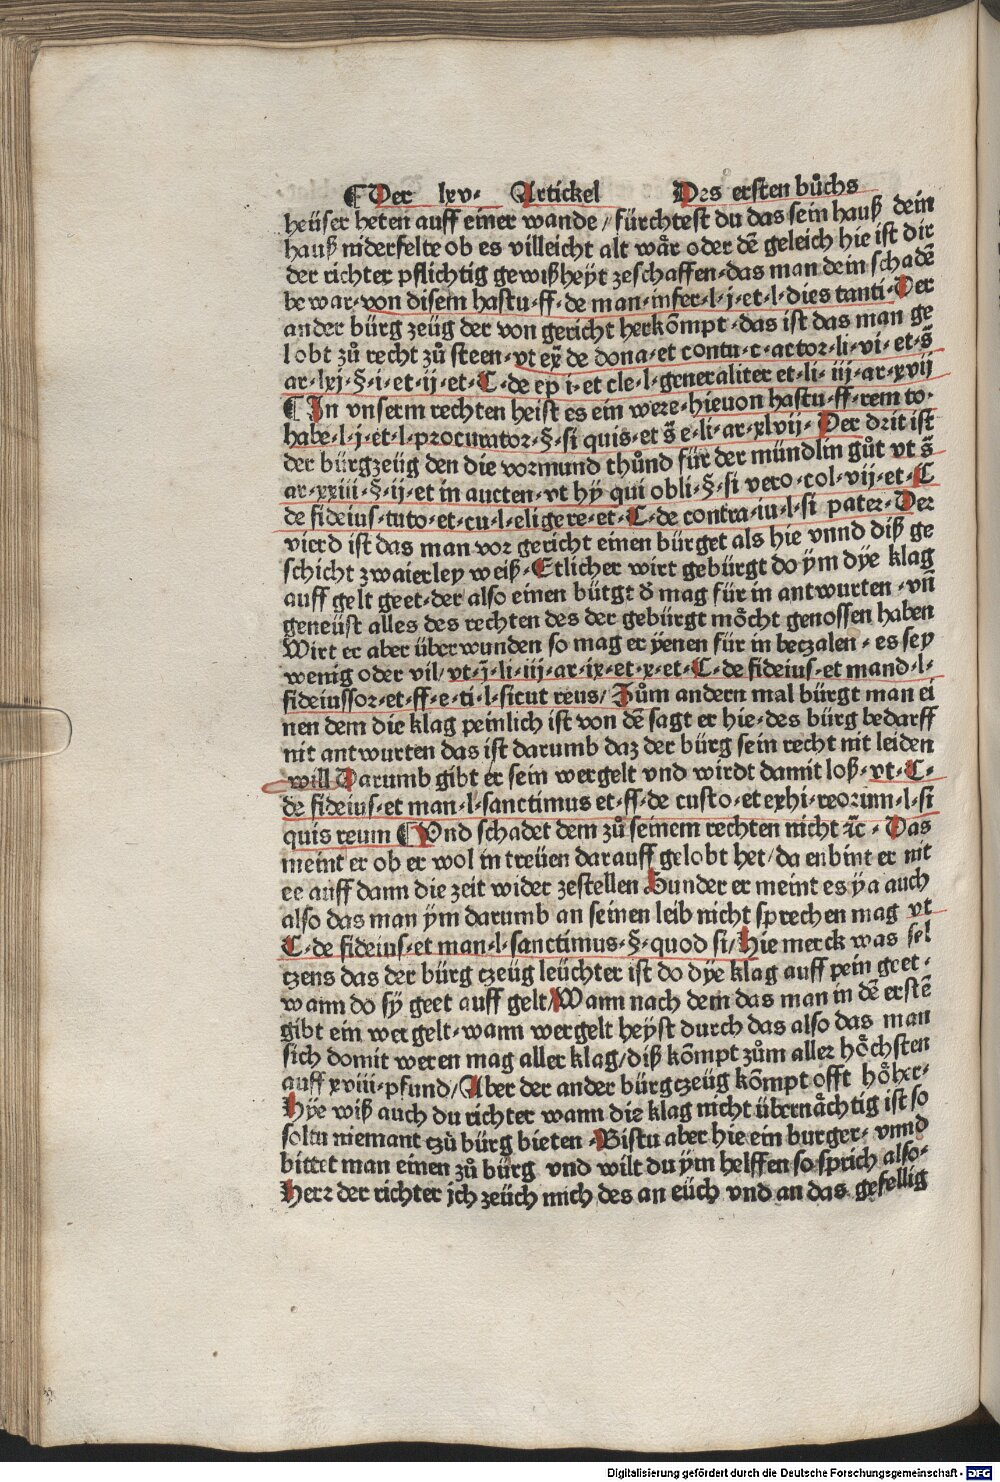 ¶ Der lxv· Artickel Des ersten bůchs
heüser heten auff einer wande / fürchtest du das sein hauß dein
hauß niderfelte ob es villeicht alt wår oder dē geleich hie ist dir
der richter pflichtig gewißheyt zeschaffen·das man dein schadē
bewar·von disem hastu·ff·de man·infer·l·j·et·l·dies tanti·Der
ander bürg zeüg der von gericht herkōmpt·das ist das man ge
lobt zů recht zů steen·vt ex̄ de dona·et contu·c·actor·li·vi·et·s̄
ar·lxj·§·i·et·ij·et·C·de ep i·et cle·l·generaliter et·li·iij·ar·xvij
¶ In vnserm rechten heist es ein were·hieuon hastu·ff·rem to·
habe·l·j·et·l·procurator·§·si quis·et s̄ e·li·ar·xlvij·Der drit ist
der bürgzeüg den die vormund thůnd für der mündlin gůt vt s̄
ar·xxiii·§·ij·et in aucten·vt hÿ qui obli·§·si vero·col·vij·et·C
de fideius·tuto·et·cu·l·eligere·et·C·de contra·iu·l·si pater·Der
vierd ist das man vor gericht einen bürget als hie vnnd diß ge
schicht zwaierley weiß·Etlicher wirt gebürgt do ÿm dÿe klag
auff gelt geet·der also einen bürgt d̄ mag für in antwurten·vn̄
geneüst alles des rechten des der gebürgt mȯcht genossen haben
Wirt er aber überwunden so mag er ÿenen für in beczalen·es sey
wenig oder vil/vt·j̄·li·iij·ar·ix·et·x·et·C·de fideius·et mand·l·
fideiussor·et·ff·e·ti·l·sicut reus/Zům andern mal bürgt man ei
nen dem die klag peinlich ist von dē sagt er hie·des bürg bedarff
nit antwurten das ist darumb daz der bürg sein recht nit leiden
will Darumb gibt er sein wergelt vnd wirdt damit loß·vt·C·
de fideius·et man·l·sanctimus et·ff·de custo·et exhi·reorum·l·si
quis reum ¶ Vnd schadet dem zů seinem rechten nicht ⁊c·Das
meint er ob er wol in treüen darauff gelobt het/da enbint er nit
ee auff dann die zeit wider zestellen Sunder er meint es ÿa auch
also das man ÿm darumb an seinen leib nicht sprechen mag vt
C·de fideius·et man·l·sanctimus·§·quod si/Hie merck was sel
tzens das der bürg tzeüg leüchter ist do dÿe klag auff pein geet·
wann do sÿ geet auff gelt/Wann nach dem das man in dē erstē
gibt ein wergelt·wann wergelt heyst durch das also das man
sich domit weren mag aller klag/diß kōmpt zům aller hȯchsten
auff xviii·pfund/Aber der ander bürgtzeüg kōmpt offt hȯher·
Hÿe wiß auch du richter wann die klag nicht übernåchtig ist so
soltu niemant tzů bürg bieten·Bistu aber hie ein burger·vnnd
bittet man einen zů bürg vnd wilt du ÿm helffen so sprich also·
Herr der richter jch zeüch mich des an eüch vnd an das gefellig
Digitalisierung gefördert durch die Deutsche Forschungsgemeinschaft - DFG